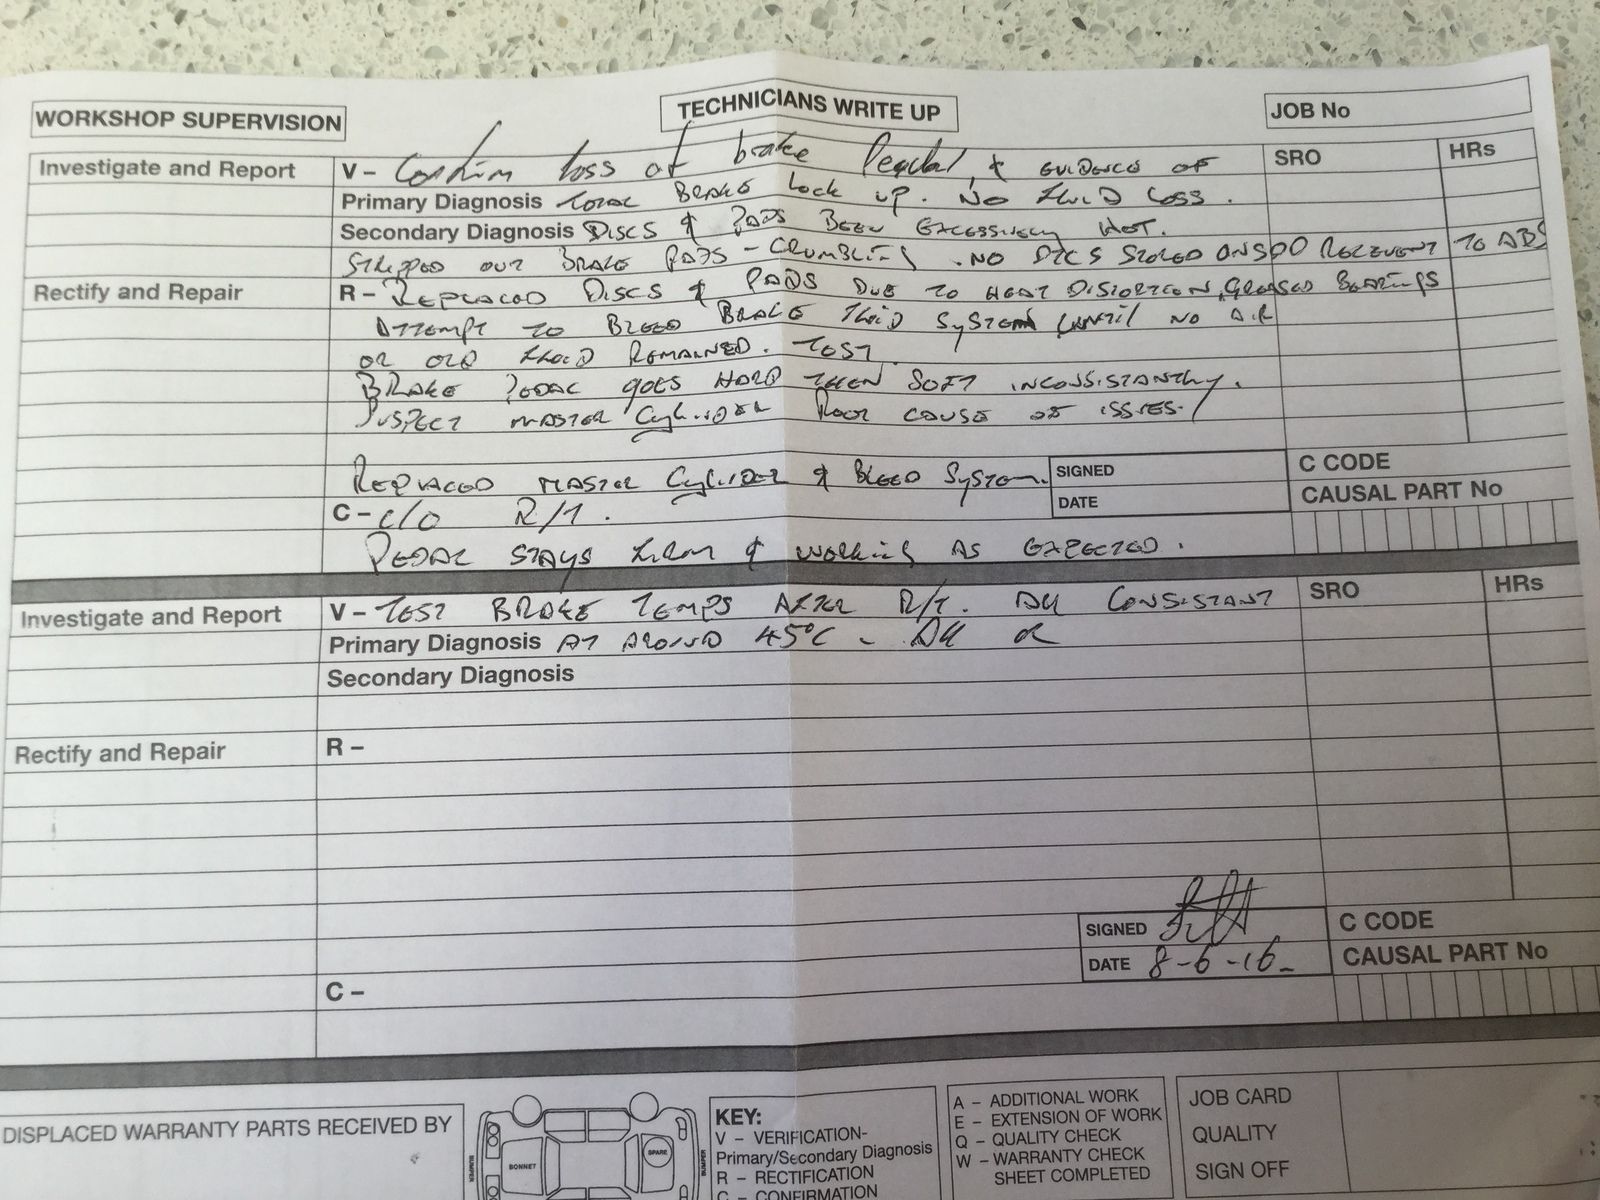 WORKSHOP SUPERVISION
TECHNICIANS WRITE UP
JOB No
Investigate and Report
V - Confirm loss of brake Peadal, & EVIDENCE OF
SRO
HRs
Primary Diagnosis TOTAL BRAKE LOCK UP. NO FLUID LOSS.
Secondary Diagnosis DISCS & PADS BEEN EXCESSIVELY HOT.
STRIPPED OUT BRAKE PADS - CRUMBLING. NO DTCS STORED ON SDD RELEVENT TO ABS
Rectify and Repair
R - REPLACED DISCS & PADS DUE TO HEAT DISTORTION, GREASED BEARINGS
ATTEMPT TO BLEED BRAKE FLUID SYSTEM UNTIL NO AIR
OR OLD FLUID REMAINED. TEST.
BRAKE PEDAL GOES HARD THEN SOFT INCONSISTANTLY.
SUSPECT MASTER CYLINDER ROOT CAUSE OF ISSUES.
REPLACED MASTER CYLINDER & BLEED SYSTEM.
SIGNED
DATE
C CODE
CAUSAL PART No
C - C/O R/T.
PEDAL STAYS FIRM & WORKING AS EXPECTED.
Investigate and Report
V - TEST BRAKE TEMPS AFTER R/T. ALL CONSISTANT
SRO
HRs
Primary Diagnosis AT AROUND 45°C - ALL OK
Secondary Diagnosis
Rectify and Repair
R -
SIGNED
DATE 8-6-16
C CODE
CAUSAL PART No
C -
DISPLACED WARRANTY PARTS RECEIVED BY
BUMPER
BONNET
SPARE
BUMPER
KEY:
V - VERIFICATION-
Primary/Secondary Diagnosis
R - RECTIFICATION
C - CONFIRMATION
A - ADDITIONAL WORK
E - EXTENSION OF WORK
Q - QUALITY CHECK
W - WARRANTY CHECK
SHEET COMPLETED
JOB CARD
QUALITY
SIGN OFF